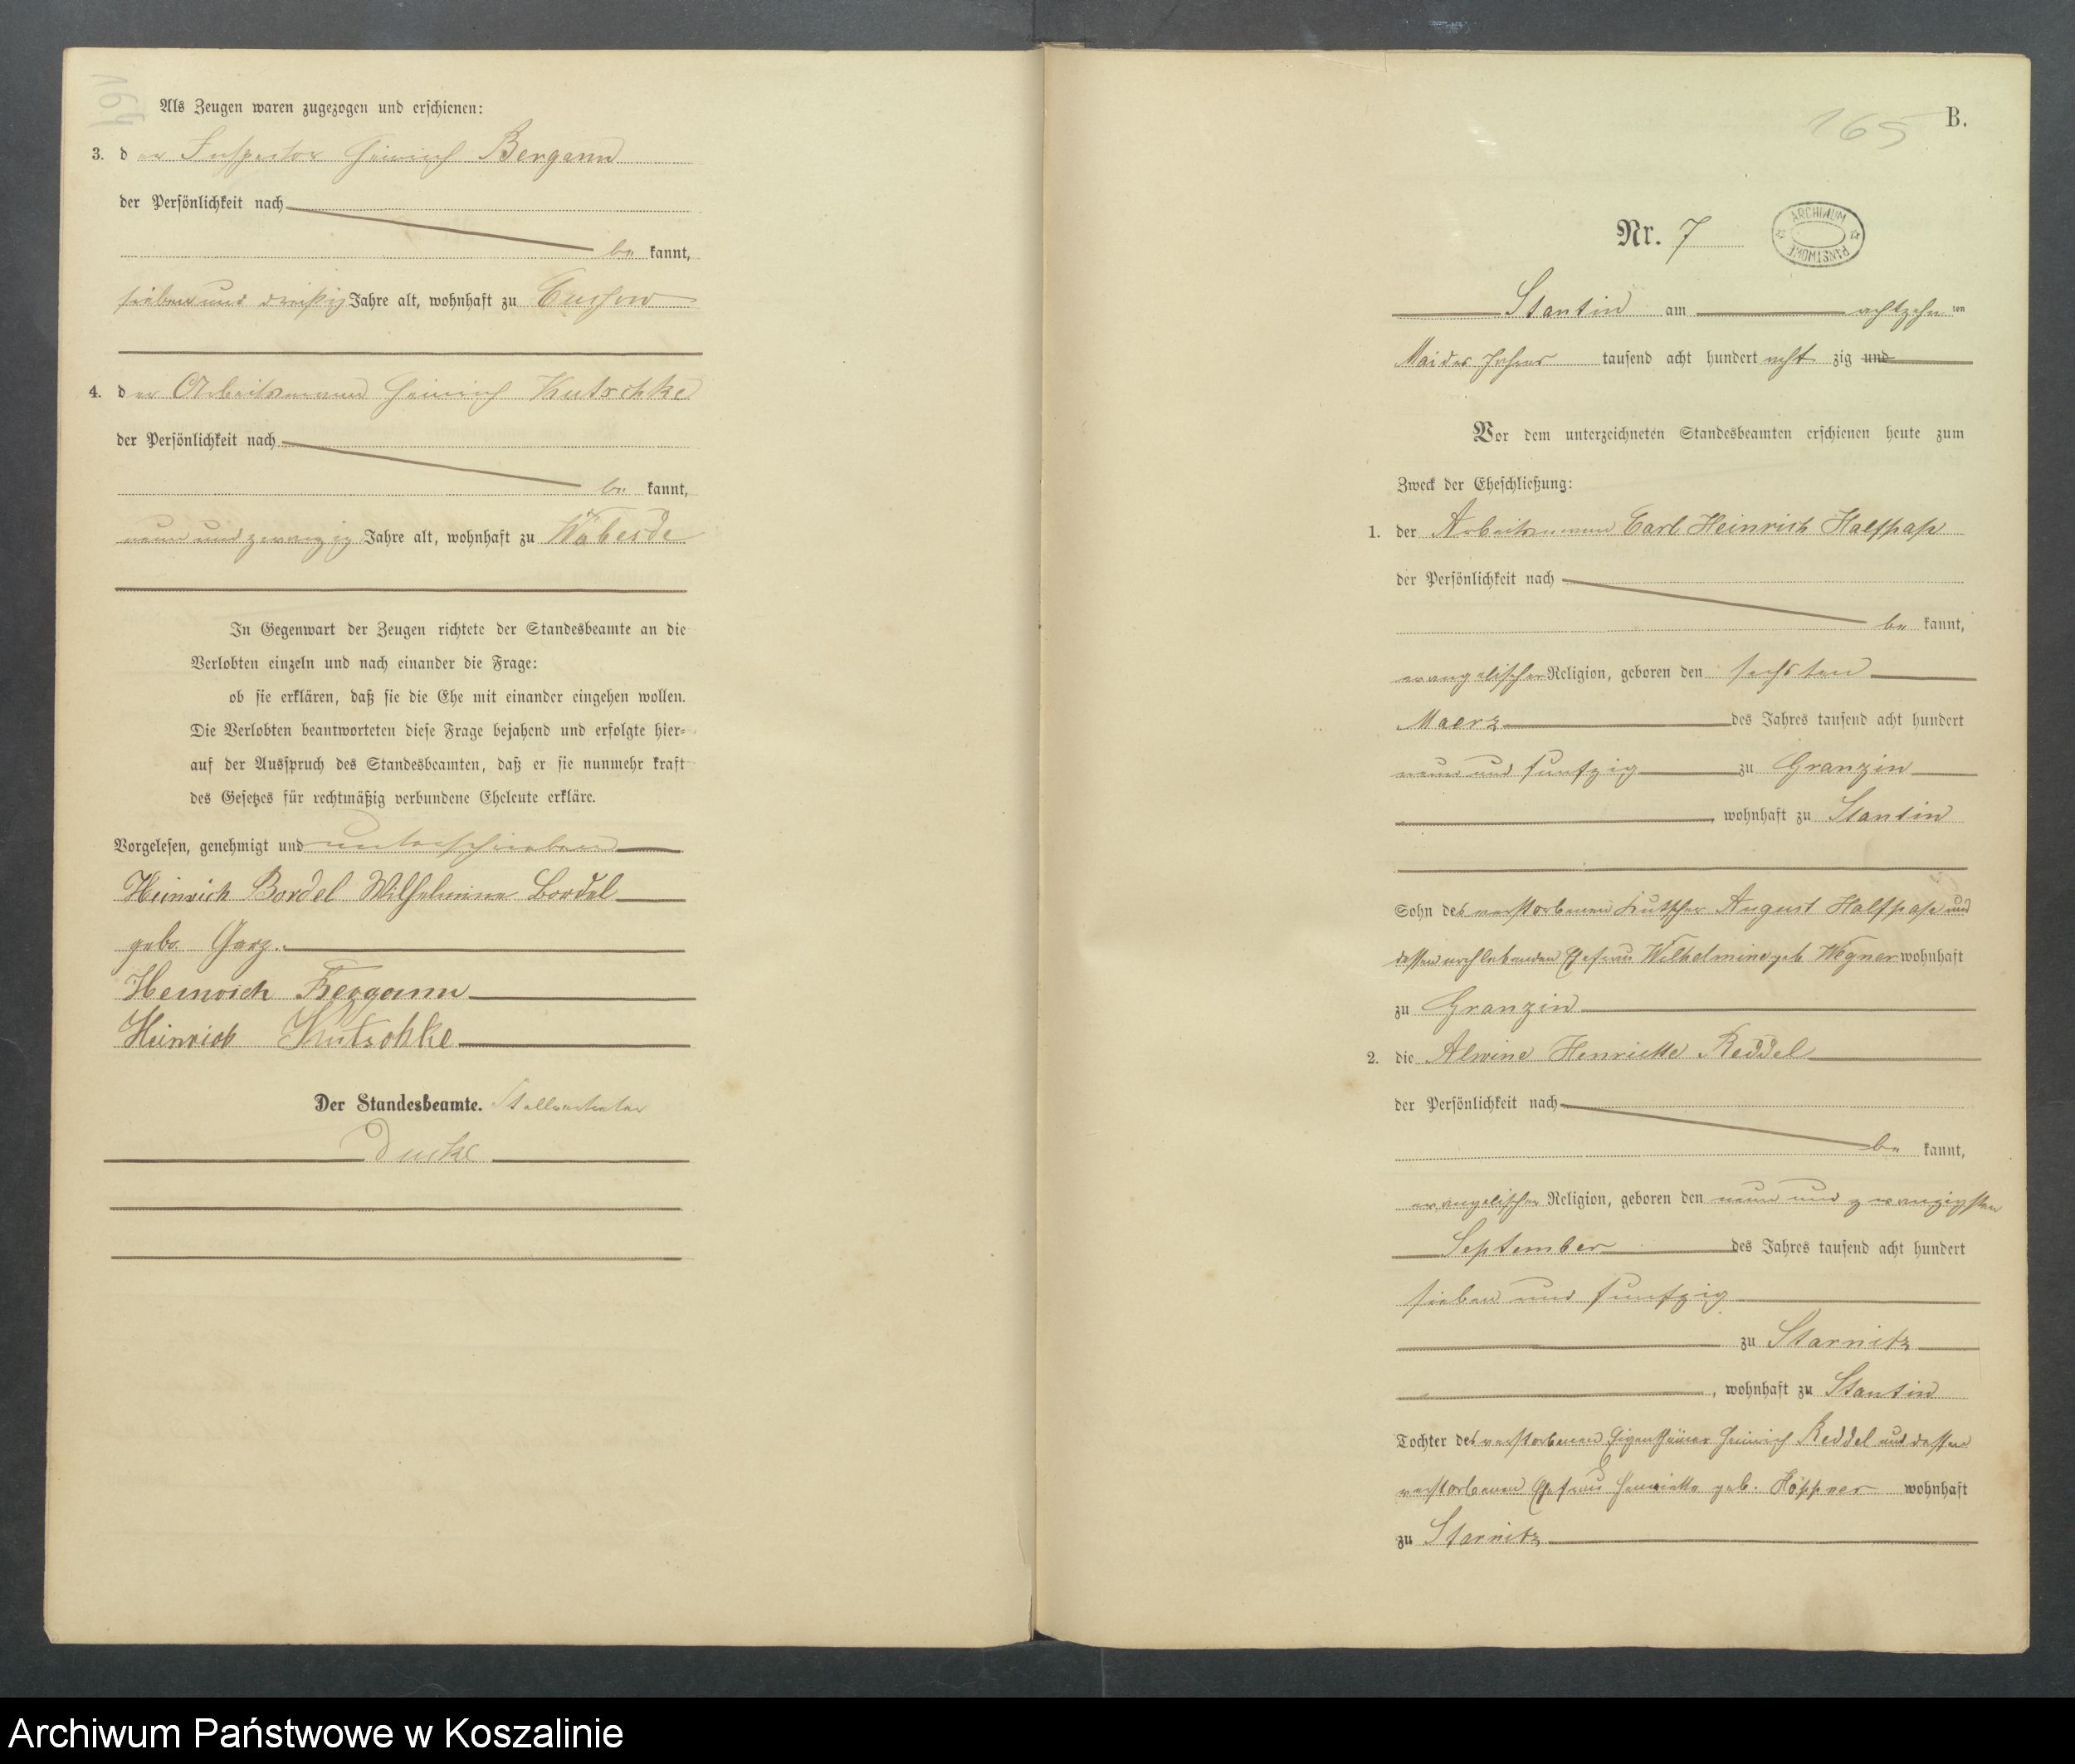 Als Zeugen waren zugezogen und erschienen:
3. der Inspector Heinrich Bergann
der Persönlichkeit nach
be kannt,
sieben und dreißig Jahre alt, wohnhaft zu Cussow
4. der Arbeitsmann Heinrich Kutschke
der Persönlichkeit nach
be kannt,
neun und zwanzig Jahre alt, wohnhaft zu Wobesde
In Gegenwart der Zeugen richtete der Standesbeamte an die
Verlobten einzeln und nach einander die Frage:
ob sie erklären, daß sie die Ehe mit einander eingehen wollen.
Die Verlobten beantworteten diese Frage bejahend und erfolgte hier-
auf der Ausspruch des Standesbeamten, daß er sie nunmehr kraft
des Gesetzes für rechtmäßig verbundene Eheleute erkläre.
Vorgelesen, genehmigt und unterschrieben
Heinrich Bordel Wilhelmine Bordel
geb. Garz.
Heinrich Bergann
Heinrich Kutschke
Der Standesbeamte. Stellvertreter
165
B.
Nr. 7
ARCHIWUM PAŃSTWOWE
Stantin am achtzehn ten
Mai des Jahres tausend acht hundert acht zig und
Vor dem unterzeichneten Standesbeamten erschienen heute zum
Zweck der Eheschließung:
1. der Arbeitsmann Carl Heinrich Halfpap
der Persönlichkeit nach
be kannt,
evangelischer Religion, geboren den sechsten
Maerz des Jahres tausend acht hundert
neun und funfzig zu Granzin
, wohnhaft zu Stantin
Sohn des verstorbenen Kutscher August Halfpap und
dessen nachlebenden Ehefrau Wilhelmine geb. Wegner wohnhaft
zu Granzin
2. die Alwine Henriette Reddel
der Persönlichkeit nach
be kannt,
evangelischer Religion, geboren den neun und zwanzigsten
September des Jahres tausend acht hundert
sieben und funfzig
zu Starnitz
, wohnhaft zu Stantin
Tochter des verstorbenen Eigenthümer Heinrich Reddel und dessen
verstorbenen Ehefrau Henriette geb. Höppner wohnhaft
zu Starnitz
Archiwum Państwowe w Koszalinie